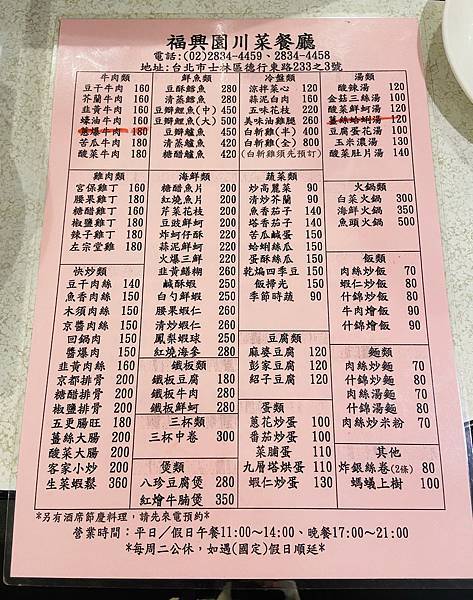 福興園川菜餐廳
電話:(02)2834-4459、2834-4458
地址:台北市士林區德行東路233之3號
牛肉類
豆干牛肉 160
芥蘭牛肉 160
韭黃牛肉 160
蠔油牛肉 160
蔥爆牛肉 180
苦瓜牛肉 180
酸菜牛肉 180
雞肉類
宮保雞丁 160
腰果雞丁 160
糖醋雞丁 160
椒鹽雞丁 160
辣子雞丁 160
左宗堂雞 160
快炒類
豆干肉絲 140
魚香肉絲 150
木須肉絲 150
京醬肉絲 150
回鍋肉 150
醬爆肉 150
韭黃肉絲 160
京都排骨 200
糖醋排骨 200
椒鹽排骨 200
五更腸旺 180
薑絲大腸 200
酸菜大腸 200
客家小炒 200
生菜蝦鬆 360
鮮魚類
豆酥鱈魚 280
清蒸鱈魚 280
豆瓣鯉魚(中) 450
豆瓣鯉魚(大) 500
豆瓣鱸魚 420
清蒸鱸魚 420
糖醋鱸魚 420
海鮮類
糖醋魚片 200
紅燒魚片 200
芹菜花枝 200
豆豉鮮蚵 200
炸蚵仔酥 200
蒜泥鮮蚵 200
火爆三鮮 220
韭黃鱔糊 260
鹹酥蝦 250
白勺鮮蝦 250
腰果蝦仁 260
清炒蝦仁 260
鳳梨蝦球 250
紅燒海參 280
鐵板類
鐵板豆腐 180
鐵板牛肉 200
鐵板鮮蚵 280
三杯類
三杯中卷 300
煲類
八珍豆腐煲 280
紅燴牛腩煲 350
冷盤類
涼拌菜心 120
蒜泥白肉 160
五味花枝 220
美味油雞腿 260
白斬雞(半) 400
白斬雞(全) 800
(白斬雞須先預訂)
蔬菜類
炒高麗菜 90
清炒芥蘭 90
魚香茄子 140
塔香茄子 140
苦瓜鹹蛋 150
蛤蜊絲瓜 150
蛋酥絲瓜 150
乾煸四季豆 150
飯掃光 150
季節時蔬 90
豆腐類
麻婆豆腐 120
彭家豆腐 120
紹子豆腐 120
蛋類
蔥花炒蛋 100
番茄炒蛋 100
菜脯蛋 110
九層塔烘蛋 110
蝦仁炒蛋 130
湯類
酸辣湯 120
金菇三絲湯 100
酸菜鮮蚵湯 120
薑絲蛤蜊湯 120
豆腐蛋花湯 100
玉米濃湯 130
酸菜肚片湯 140
火鍋類
白菜火鍋 300
海鮮火鍋 350
魚頭火鍋 500
飯類
肉絲炒飯 70
蝦仁炒飯 80
什錦炒飯 80
牛肉燴飯 90
什錦燴飯 90
麵類
肉絲炒麵 70
什錦炒麵 80
肉絲湯麵 70
什錦湯麵 80
肉絲炒米粉 70
其他
炸銀絲卷(2條) 80
螞蟻上樹 100
*另有酒席節慶料理，請先來電預約*
營業時間：平日／假日午餐11:00～14:00、晚餐17:00～21:00
*每周二公休，如遇(國定)假日順延*